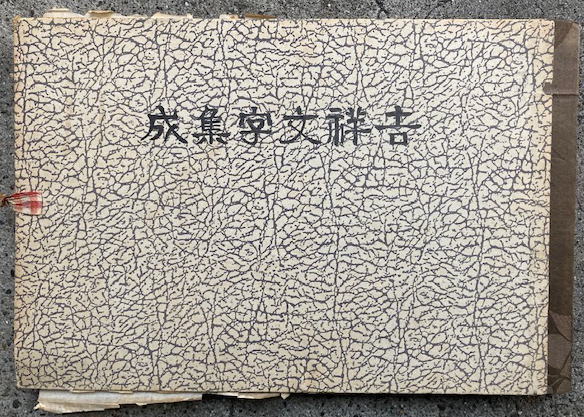 吉祥文字集成